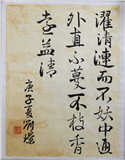 濯清漣而不妖中通
外直不蔓不枝香
遠益清
庚子夏